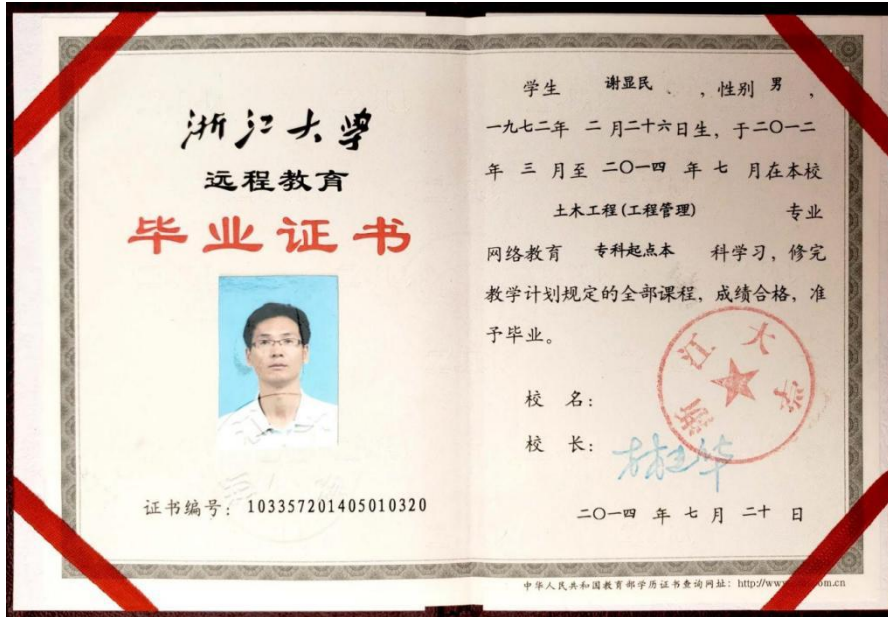 浙江大学
远程教育
毕业证书
证书编号：103357201405010320
学生 谢显民 ，性别 男 ，
一九七二年 二 月二十六日生，于二〇一二
年 三 月至 二〇一四 年 七 月在本校
土木工程(工程管理) 专业
网络教育 专科起点本 科学习，修完
教学计划规定的全部课程，成绩合格，准
予毕业。
浙江大学
校 名：
校 长：
二〇一四 年 七 月 二十 日
中华人民共和国教育部学历证书查询网址：http://www
om.cn